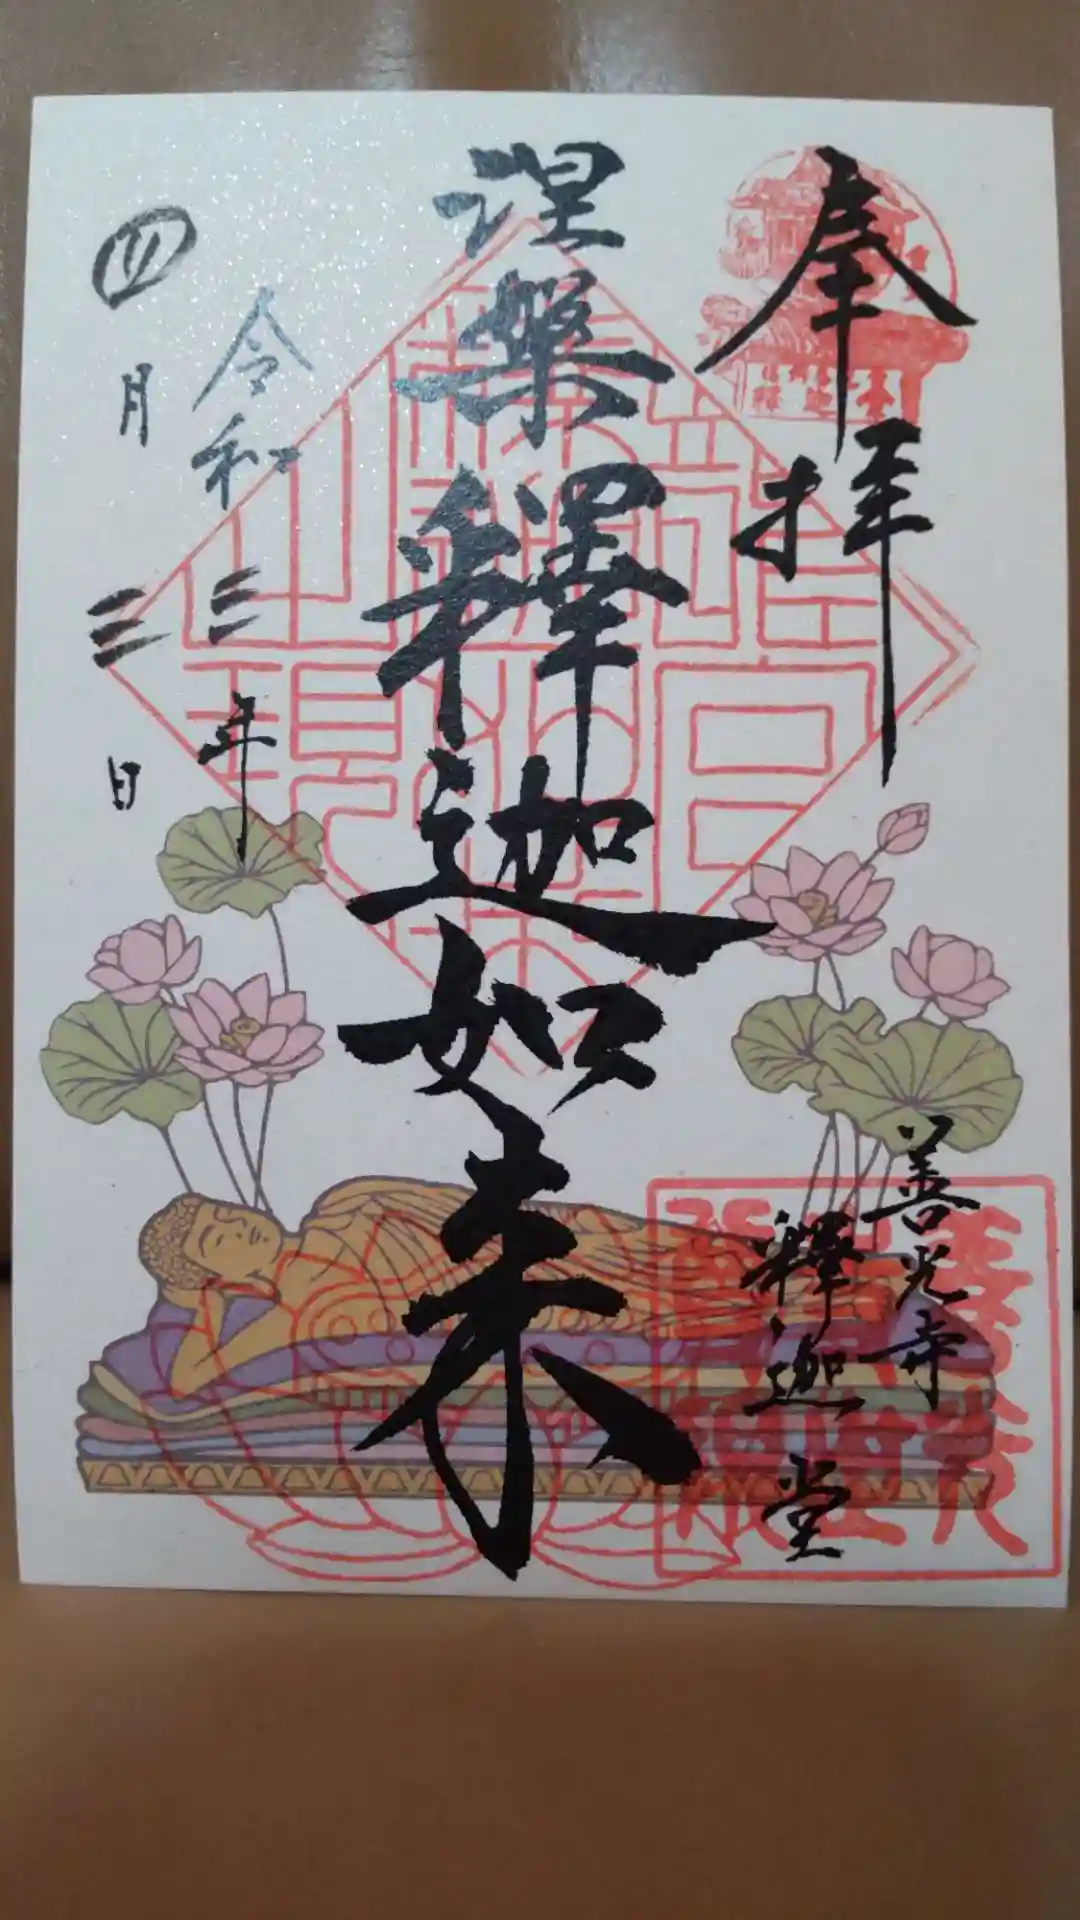 奉拝
善光寺
釋迦堂
涅槃釋迦如来
令和三年
四月三日